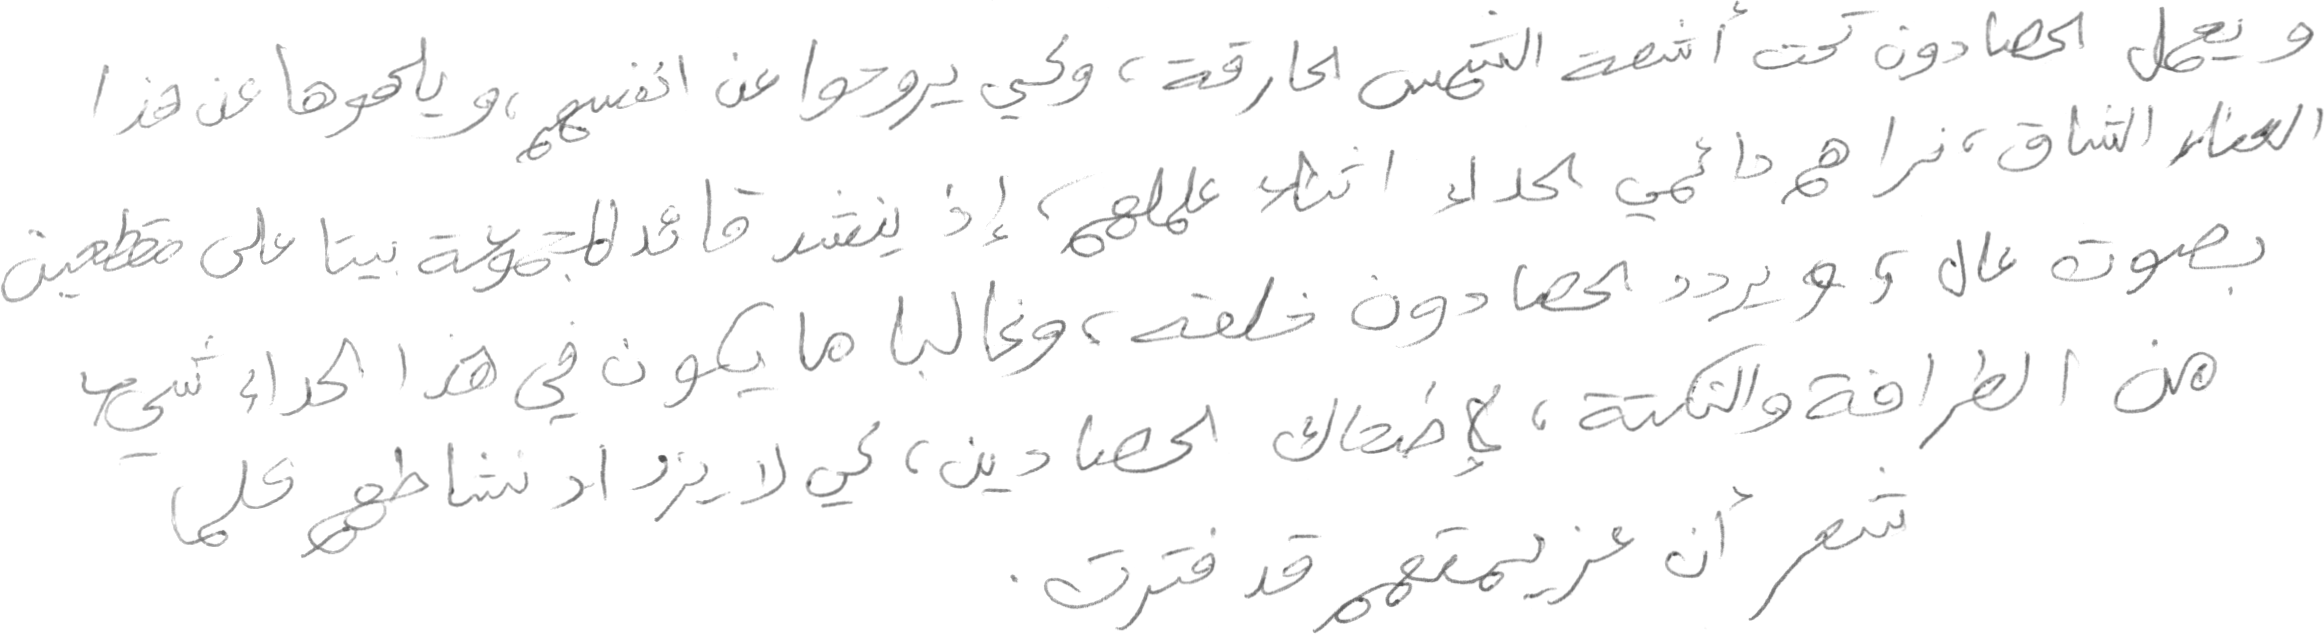 ويعمل الحصادون تحت أشعة الشمس الحارقة، وكي يروحوا عن انفسهم، ويلهوها عن هذا
العناء الشاق، نراهم دائمي الحداء اثناء عملهم، إذ ينشد قائد المجموعة بيتا على مقطعين
بصوت عال، ويردد الحصادون خلفه، وغالبا ما يكون في هذا الحداء شيء
من الطرافة والنكتة، لإضحاك الحصادين، كي لا يزداد نشاطهم كلما
شعر أن عزيمتهم قد فترت.